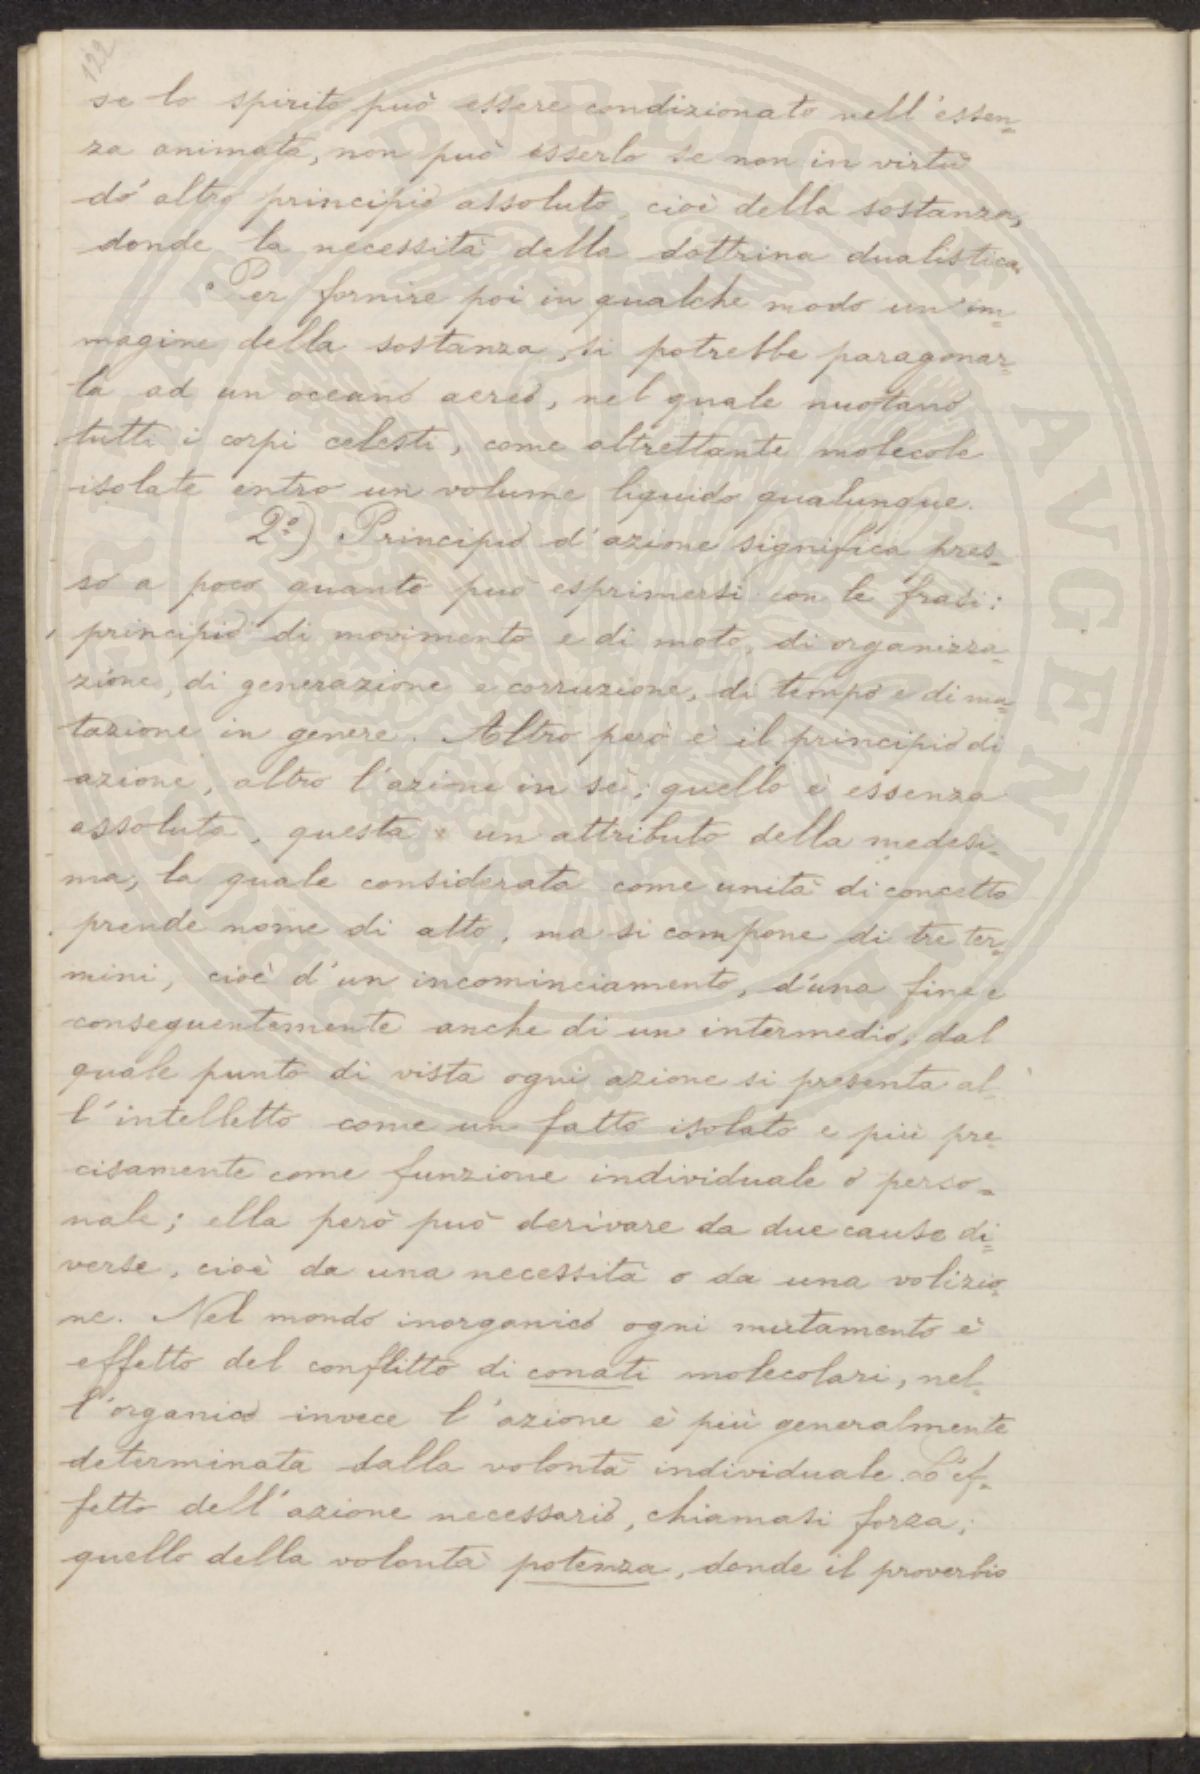 122
se lo spirito può essere condizionato nell'essen=
za animata, non può esserlo se non in virtù
d'altro principio assoluto, cioè della sostanza,
donde la necessità della dottrina dualistica.
Per fornire poi in qualche modo un'im=
magine della sostanza, si potrebbe paragonar=
la ad un oceano aereo, nel quale nuotano
tutti i corpi celesti, come altrettante molecole
isolate entro un volume liquido qualunque.
2º) Principio d'azione significa pres=
so a poco quanto può esprimersi con le frasi:
principio di movimento e di moto, di organizza=
zione, di generazione e corruzione, di tempo e di mu=
tazione in genere. Altro però è il principio di
azione, altro l'azione in sè; quello è essenza
assoluta, questa è un attributo della medesi=
ma, la quale considerata come unità di concetto
prende nome di atto, ma si compone di tre ter=
mini, cioè d'un incominciamento, d'una fine e
conseguentemente anche di un intermedio, dal
quale punto di vista ogni azione si presenta al=
l'intelletto come un fatto isolato e più pre=
cisamente come funzione individuale o perso=
nale; ella però può derivare da due cause di=
verse, cioè da una necessità o da una volizio=
ne. Nel mondo inorganico ogni mutamento è
effetto del conflitto di conati molecolari, nel=
l'organico invece l'azione è più generalmente
determinata dalla volontà individuale. L'ef=
fetto dell'azione necessario, chiamasi forza;
quello della volontà potenza, donde il proverbio
PVBLICAE AVGENDO